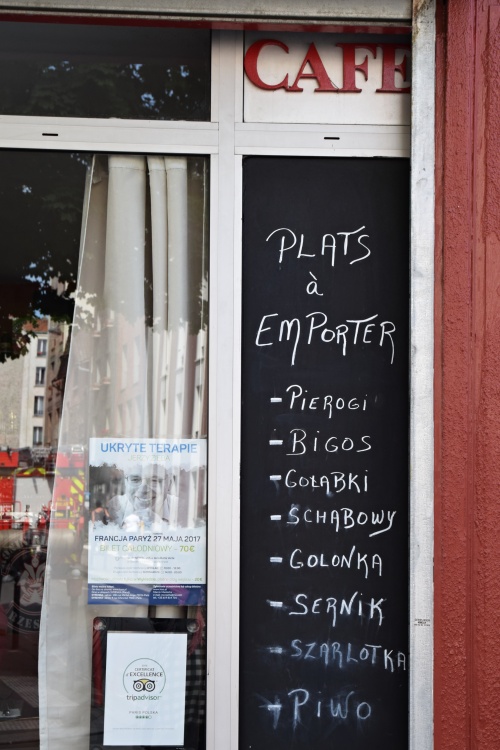 CAFE
PLATS
à
EMPORTER
- PIEROGI
- BIGOS
- GOŁĄBKI
- SCHABOWY
- GOLONKA
- SERNIK
- SZARLOTKA
- PIWO
UKRYTE TERAPIE
FRANCJA PARYŻ 27 MAJA 2017
BILET CAŁODNIOWY - 70€
CERTIFICATE
of EXCELLENCE
tripadvisor